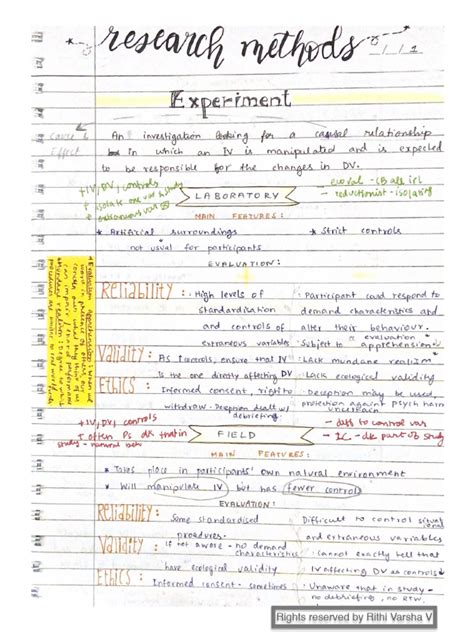 research methods
1
Experiment
Cause &
Effect
An investigation looking for a causal relationship
in which an IV is manipulated and is expected
to be responsible for the changes in DV.
+ IV, DV, controls
+ isolate one var to study
+ extraneous var
LABORATORY
- reductionist - isolating
MAIN FEATURES:
* Artificial surroundings
not usual for participants
* Strict controls
EVALUATION:
Reliability: · High levels of
standardisation
and controls of
extraneous variables
· Participant could respond to
demand characteristics and
alter their behaviour.
· Subject to evaluation
apprehension
Validity: As controls, ensure that IV
is the one directly affecting DV
· Lack mundane realism
· Lack ecological validity
Ethics: Informed consent, right to
withdraw
debriefing
· Deception may be used,
protection against psych harm
uncertain
+ IV, DV, controls
+ often Ps dk that in
study - natural
FIELD
- diff to control var
- IC - dk part of study
MAIN FEATURES:
* Takes place in participants' own natural environment
* Will manipulate IV but has fewer controls
EVALUATION:
Reliability: Some standardised
procedures.
Difficult to control
and extraneous variables
Validity: is not aware - no demand
characteristics
have ecological validity
· Cannot exactly tell that
IV affecting DV as controls ↓
Ethics: Informed consent - sometimes
· Unaware that in study -
no debriefing, no RTW.
Rights reserved by Rithi Varsha V